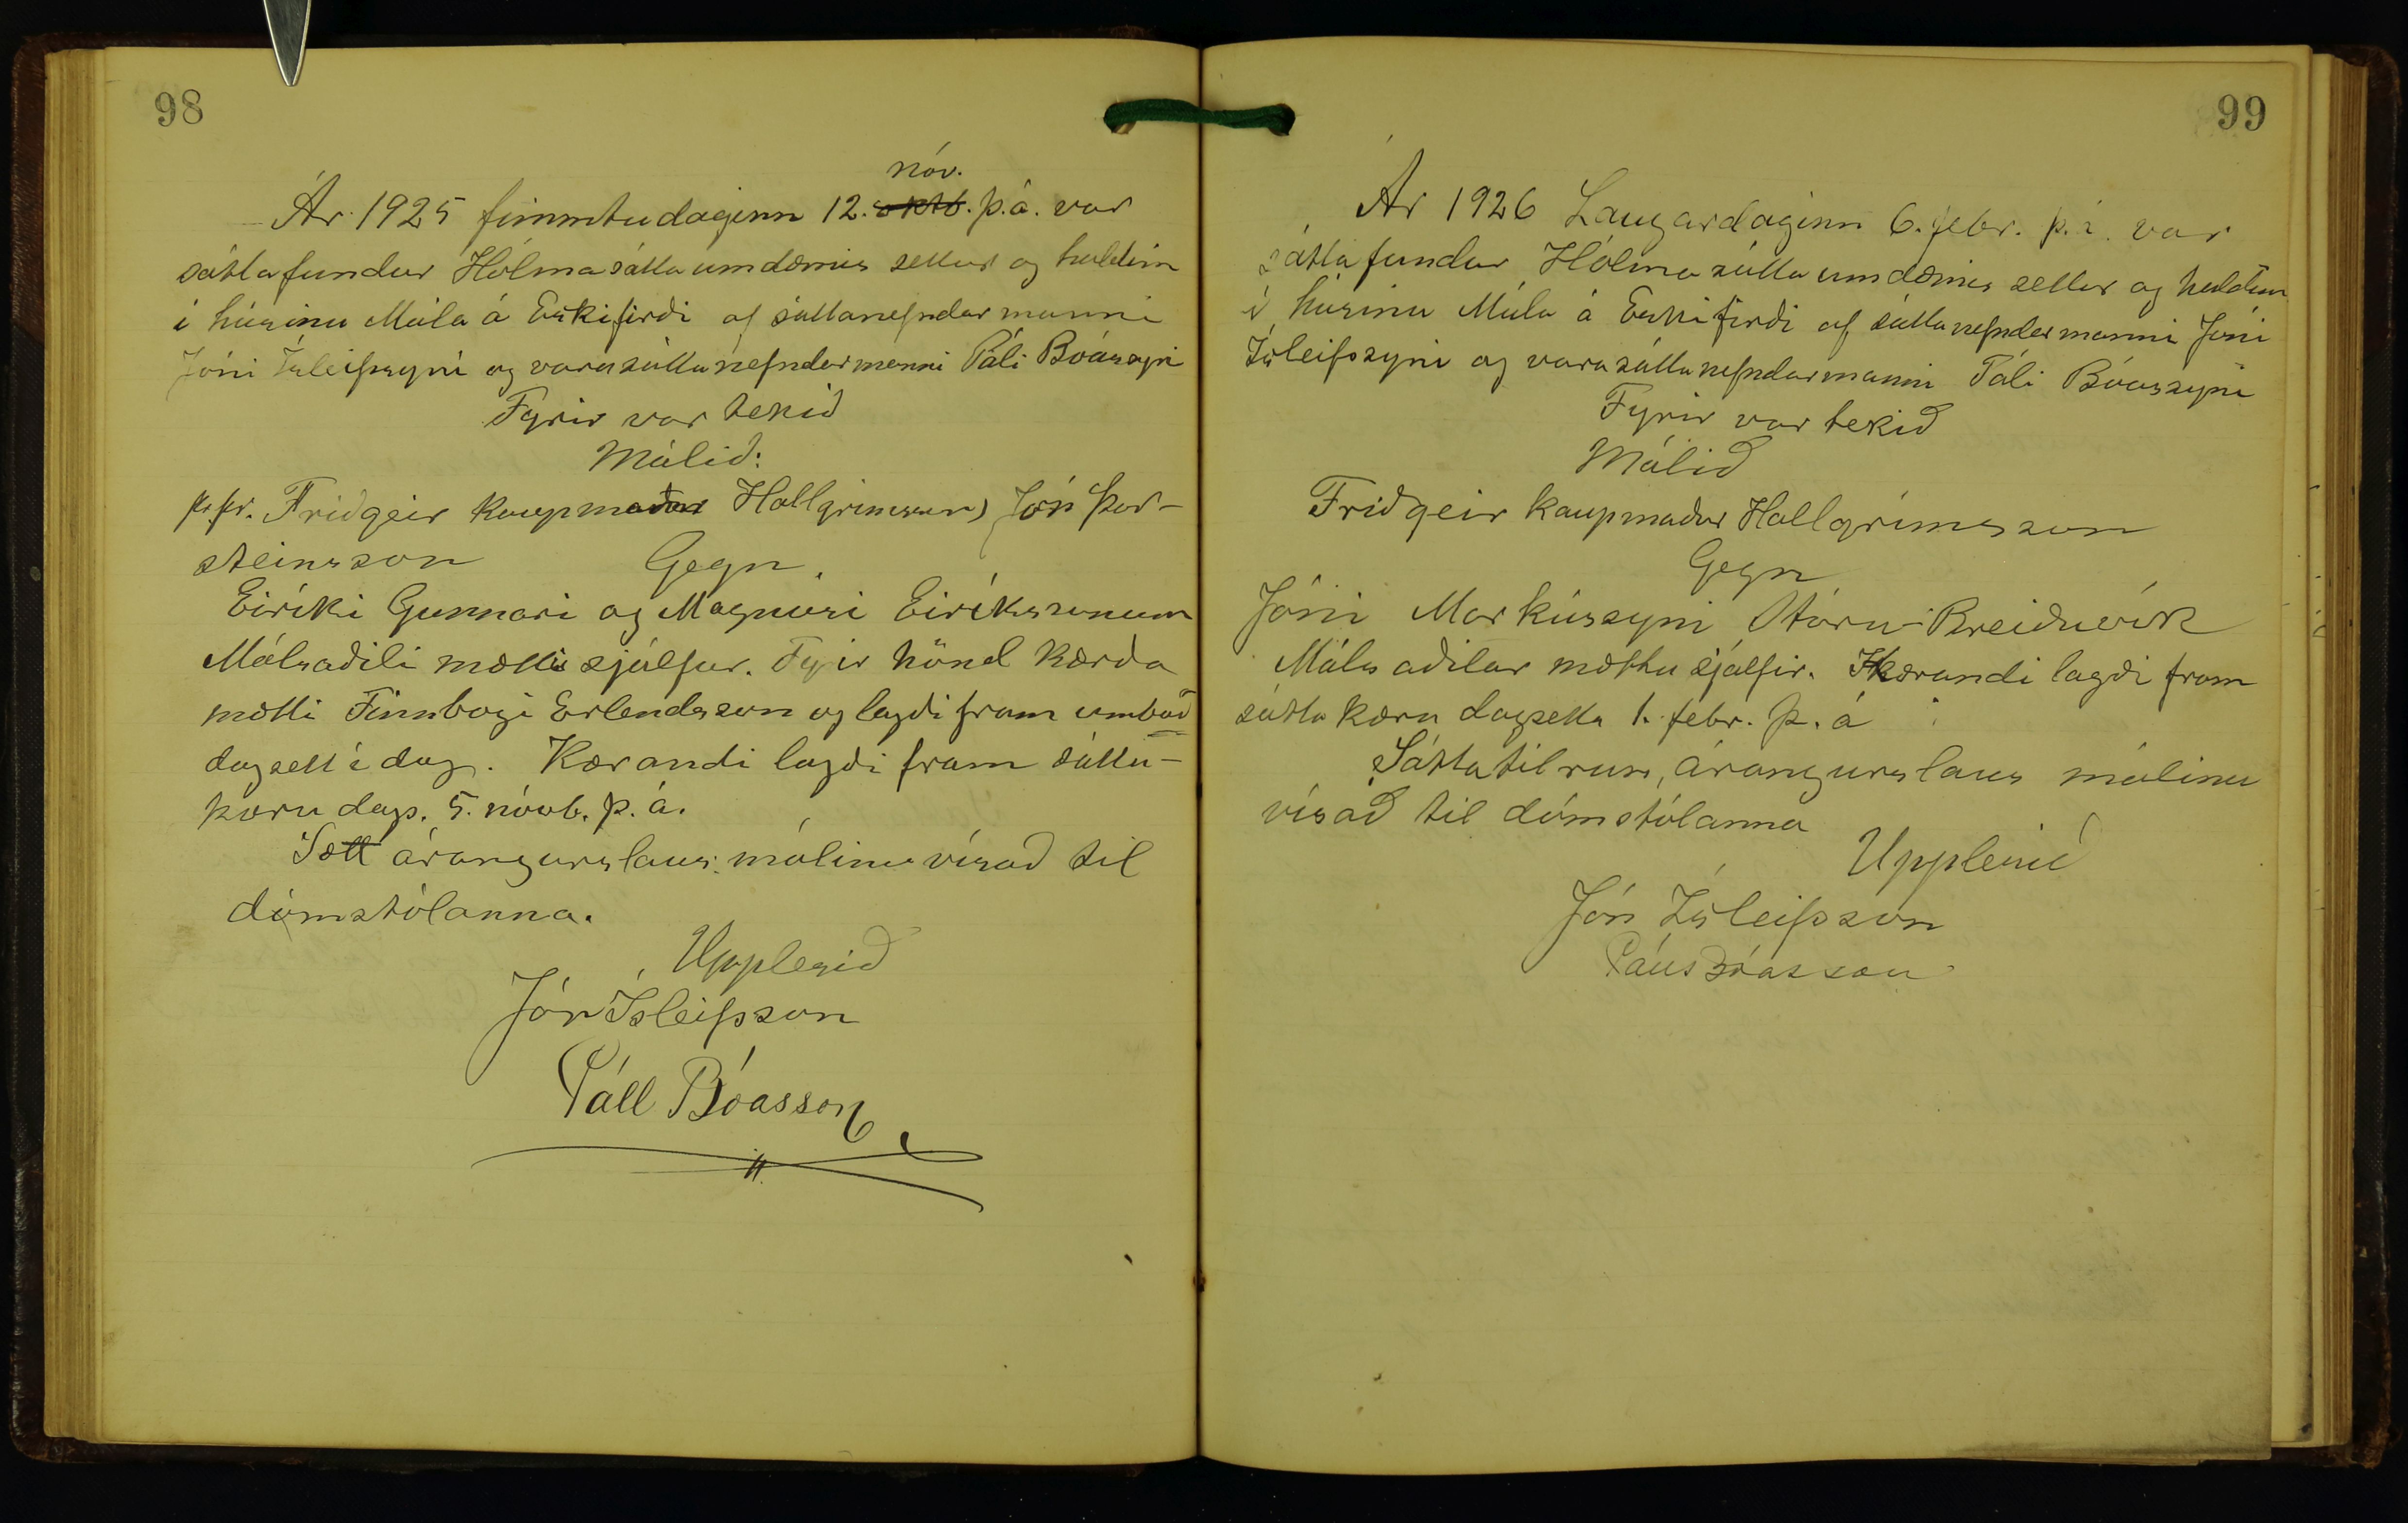 98
nóv.
Ár 1925 fimmtudaginn 12. oktb. þ.á. var
sáttafundur Hólmasáttaumdæmis settur og haldinn
í húsinu Múla á Eskifirði af sáttanefndarmanni
Jóni Ísleifssyni og varasáttanefndarmanni Páli Bóassyni
Fyrir var tekið
Málið:
p.pr. Friðgeir kaupmaður Hallgrimsson, Jón Þor-
steinsson Gegn.
Eiríki Gunnari og Magnúsi Eiríkssonum
Málsaðili mætti sjálfur. Fyrir hönd kærða
mætti Finnbogi Erlendsson og lagði fram umboð
dagsett í dag. Kærandi lagði fram sátta-
kæru dags. 5. nóvb. þ.á.
Sætt árangurslaus málinu vísað til
dómstólanna.
Upplesið
Jón Ísleifsson
Páll Bóasson
99
Ár 1926 Laugardaginn 6. febr. þ.á. var
sáttafundur Hólmasáttaumdæmis settur og haldinn
í húsinu Múla á Eskifirði af sáttanefndarmanni Jóni
Ísleifssyni og varasáttanefndarmanni Páli Bóassyni
Fyrir var tekið
Málið
Friðgeir kaupmaður Hallgrímsson
Gegn
Jóni Markússyni Stóru-Breiðuvík
Málsaðilar mættu sjálfir. Kærandi lagði fram
sáttakæru dagsetta 1. febr. þ.á
Sáttatilraun, árangurslaus málinu
vísað til dómstólanna
Upplesið
Jón Ísleifsson
Páll Bóasson